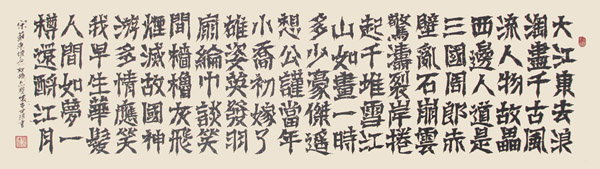 大江東去浪
淘盡千古風
流人物故壘
西邊人道是
三國周郎赤
壁亂石崩雲
驚濤裂岸捲
起千堆雪江
山如畫一時
多少豪傑遙
想公謹當年
小喬初嫁了
雄姿英發羽
扇綸巾談笑
間檣櫓灰飛
煙滅故國神
游多情應笑
我早生華髮
人間如夢一
樽還酹江月
宋蘇東坡